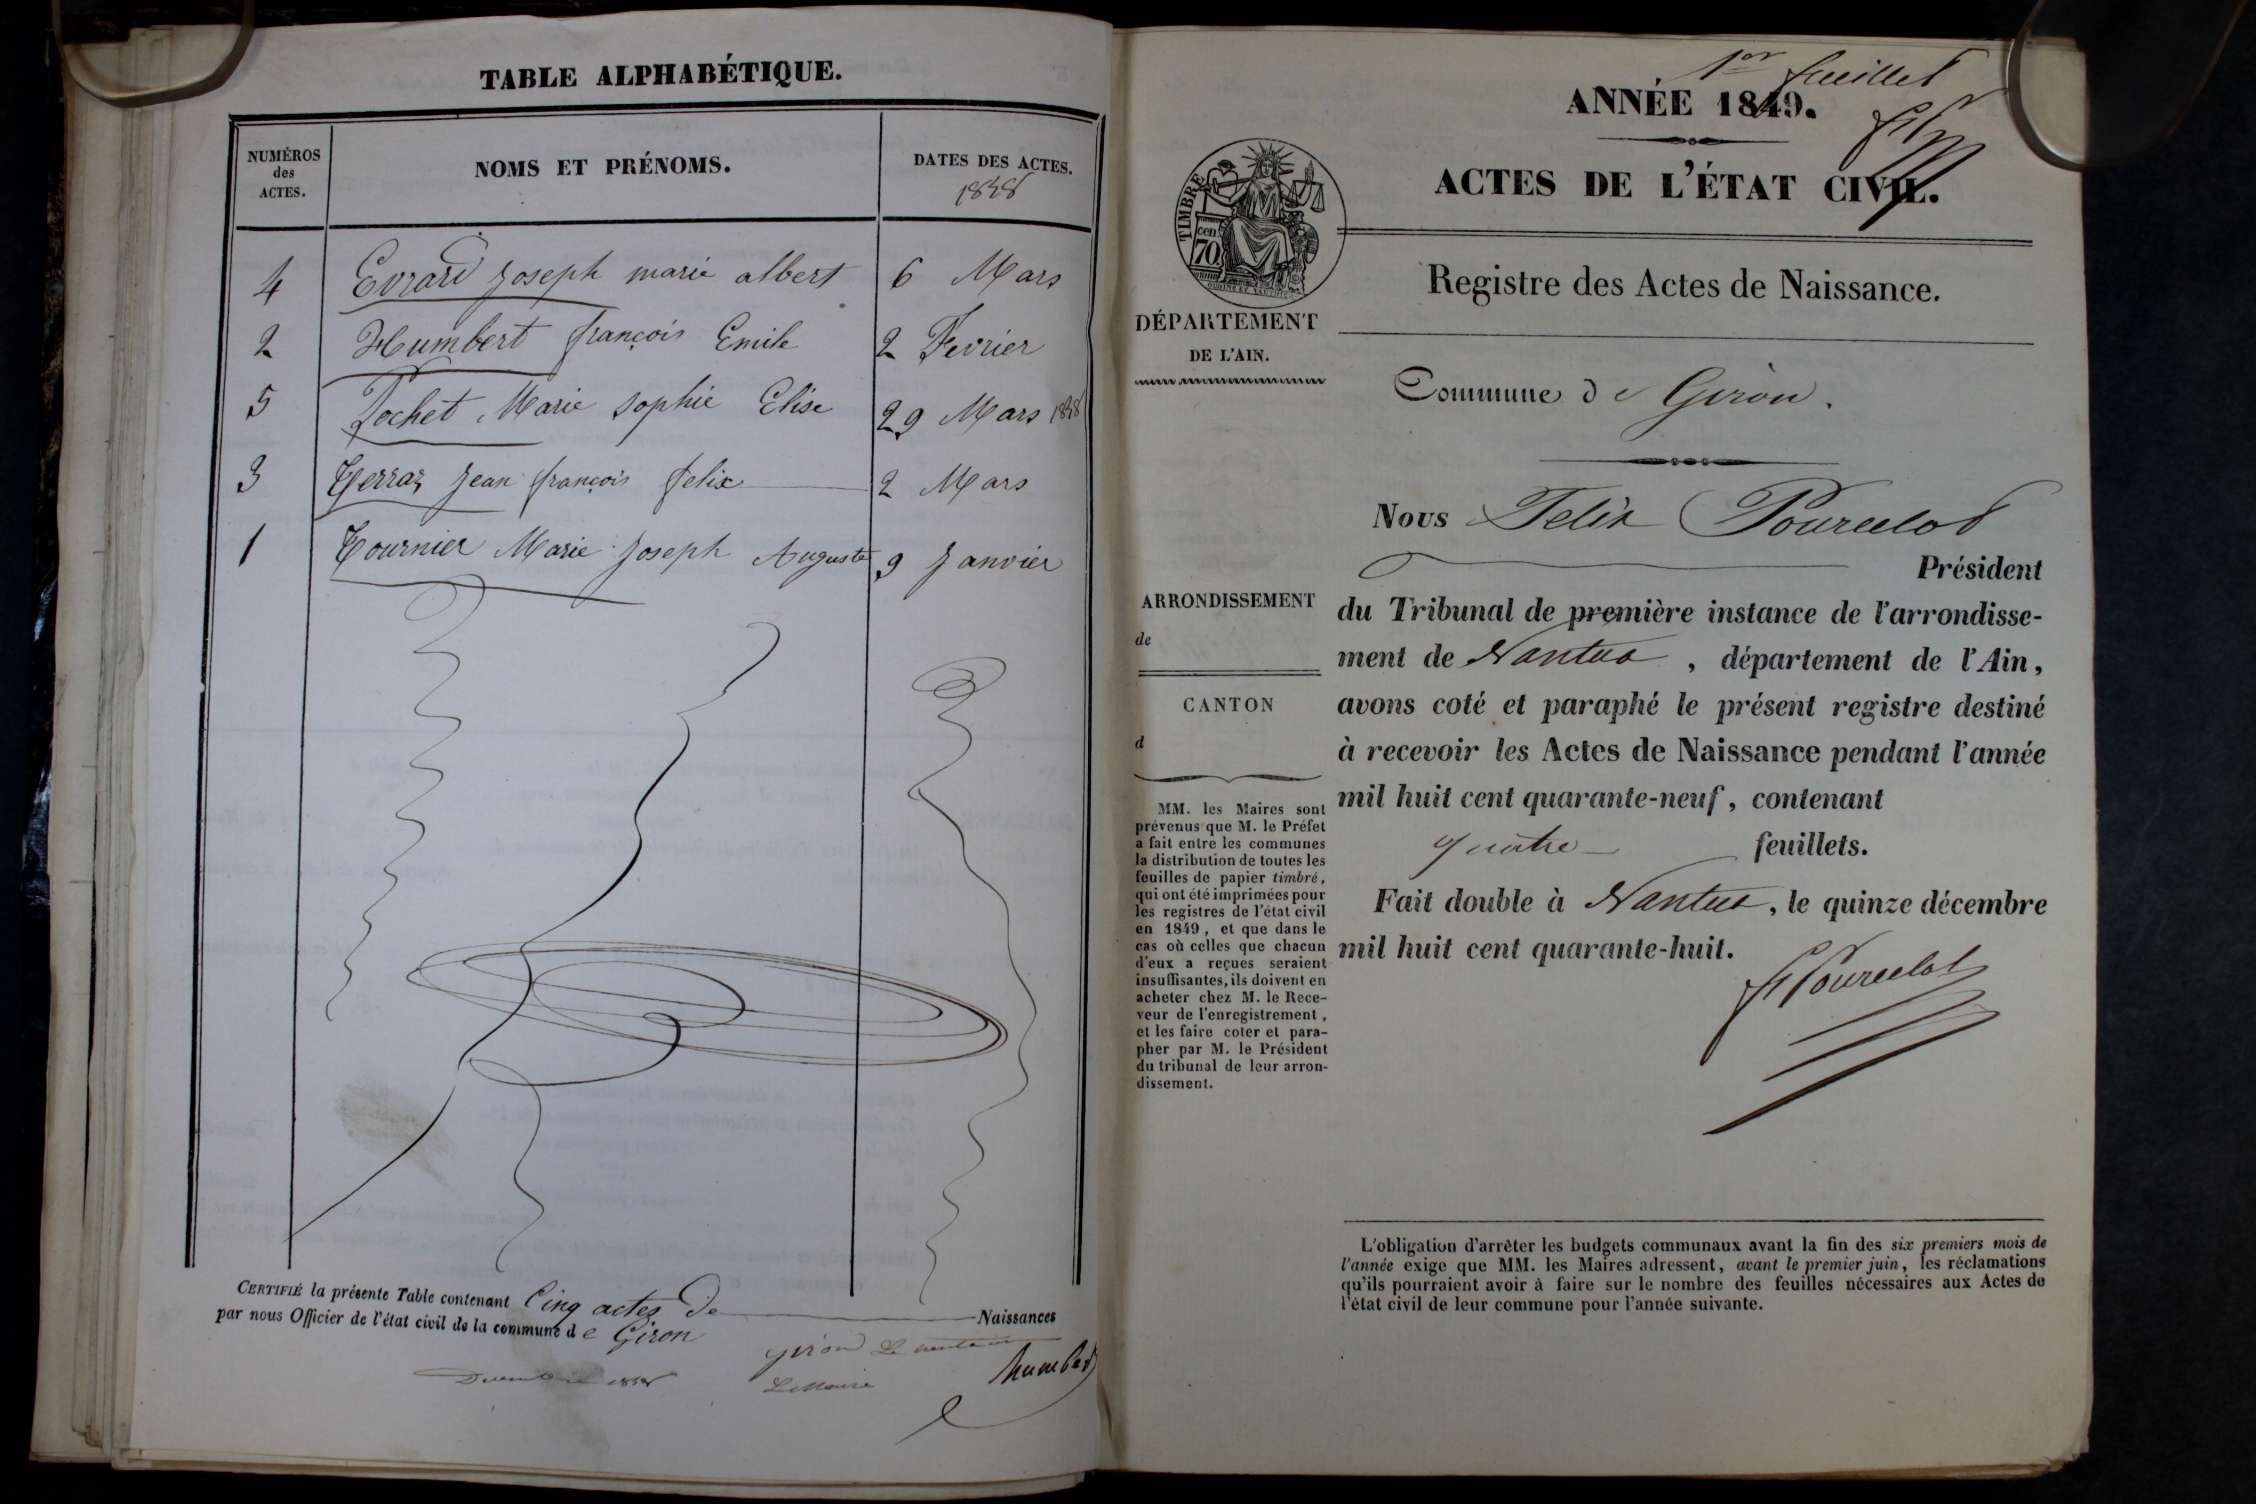 TABLE ALPHABÉTIQUE.
NUMÉROS
des
ACTES.
NOMS ET PRÉNOMS.
DATES DES ACTES.
4 Evrard Joseph marie albert 6 Mars
2 Humbert françois Emile 2 Fevrier
5 Pochet Marie Sophie Elise 29 Mars
3 Terraz Jean françois felix 2 Mars
1 Tournier Marie Joseph Auguste 9 Janvier
CERTIFIÉ la présente Table contenant Cinq actes de Naissances
par nous Officier de l'état civil de la commune de Giron
Giron Le
Le Maire
Humbert
1er feuillet
ANNÉE 1849.
ACTES DE L'ÉTAT CIVIL.
TIMBRE
70 cen
Registre des Actes de Naissance.
DÉPARTEMENT
DE L'AIN.
Commune de Giron.
Nous Felix Pourcelot
Président
du Tribunal de première instance de l'arrondisse-
ment de Nantua, département de l'Ain,
avons coté et paraphé le présent registre destiné
à recevoir les Actes de Naissance pendant l'année
mil huit cent quarante-neuf, contenant
quatre feuillets.
Fait double à Nantua, le quinze décembre
mil huit cent quarante-huit.
F Pourcelot
ARRONDISSEMENT
de
CANTON
d
MM. les Maires sont
prévenus que M. le Préfet
a fait entre les communes
la distribution de toutes les
feuilles de papier timbré,
qui ont été imprimées pour
les registres de l'état civil
en 1849, et que dans le
cas où celles que chacun
d'eux a reçues seraient
insuffisantes, ils doivent en
acheter chez M. le Rece-
veur de l'enregistrement,
et les faire coter et para-
pher par M. le Président
du tribunal de leur arron-
dissement.
L'obligation d'arrêter les budgets communaux avant la fin des six premiers mois de
l'année exige que MM. les Maires adressent, avant le premier juin, les réclamations
qu'ils pourraient avoir à faire sur le nombre des feuilles nécessaires aux Actes de
l'état civil de leur commune pour l'année suivante.